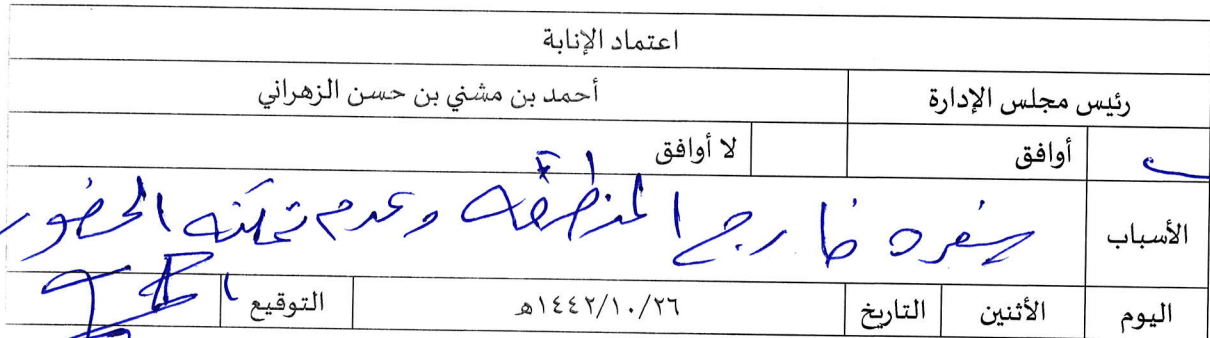 اعتماد الإنابة
رئيس مجلس الإدارة أحمد بن مشني بن حسن الزهراني
أوافق لا أوافق
الأسباب سفره خارج المنطقة وعدم تمكنه الحضور
اليوم الأثنين التاريخ ١٤٤٢/١٠/٢٦هـ التوقيع